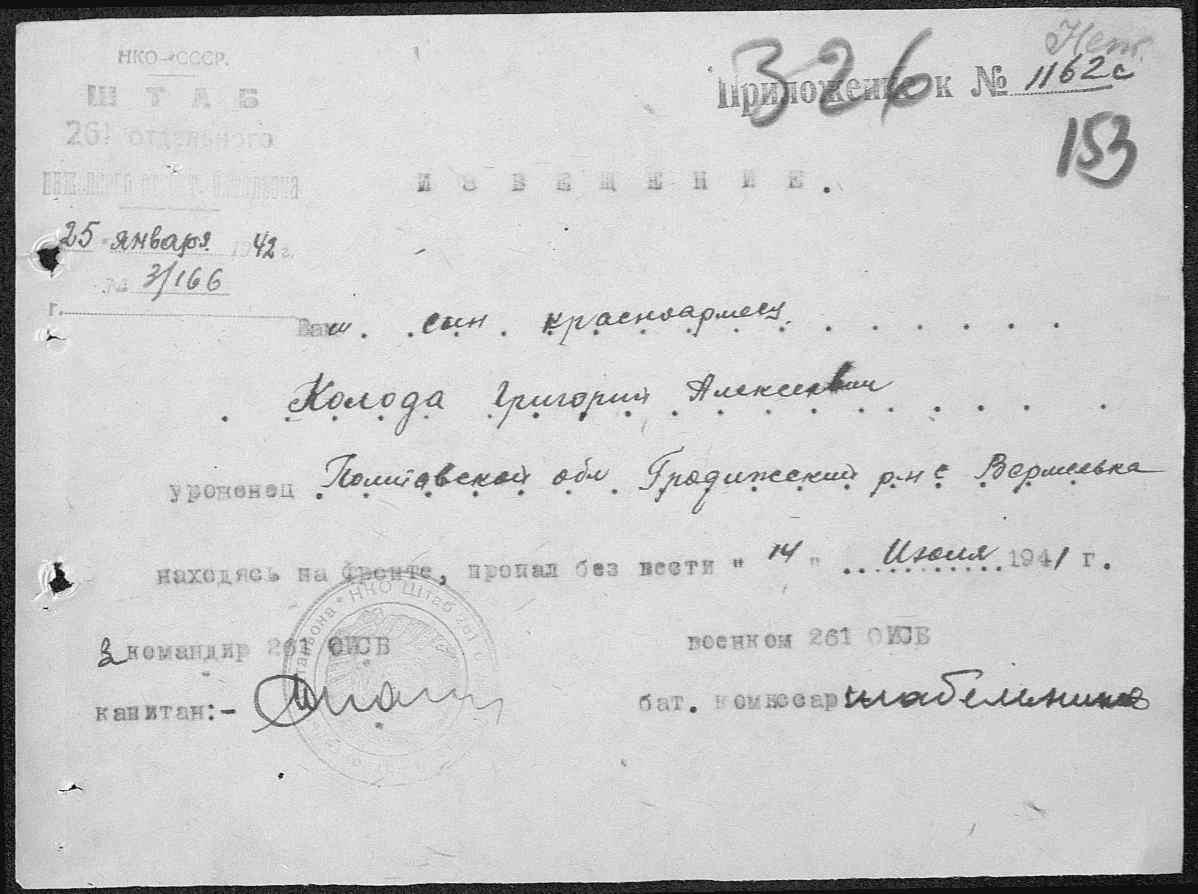 НКО-СССР.
ШТАБ
261 отдельного
25 января 1942 г.
№ 3/166
г.
Нет
326
Приложение к № 1162с
153
ИЗВЕЩЕНИЕ.
Ваш. сын. красноармеец.
Колода Григорий Алексеевич
уроженец Полтавской обл. Градижский р-н с
находясь на фронте, пропал без вести " 14 " Июля 1941 г.
З командир 261 ОИСБ
капитан:-
военком 261 ОИСБ
бат. комиссар
НКО Штаб 261